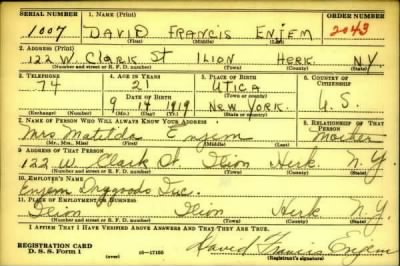 SERIAL NUMBER 1. NAME (Print) ORDER NUMBER
1007 DAVID FRANCIS ENJEM 2043
(First) (Middle) (Last)
2. ADDRESS (Print)
122 W. CLARK ST ILION HERK. N.Y.
(Number and street or R. F. D. number) (Town) (County) (State)
3. TELEPHONE 4. AGE IN YEARS 5. PLACE OF BIRTH 6. COUNTRY OF CITIZENSHIP
74 21 UTICA
DATE OF BIRTH (Town or county)
9 14 1919 NEW YORK. U.S.
(Exchange) (Number) (Mo.) (Day) (Yr.) (State or country)
7. NAME OF PERSON WHO WILL ALWAYS KNOW YOUR ADDRESS 8. RELATIONSHIP OF THAT PERSON
Mrs Matilda Enjem Mother
(Mr., Mrs., Miss) (First) (Middle) (Last)
9. ADDRESS OF THAT PERSON
122 W. Clark St. Ilion Herk. N.Y.
(Number and street or R. F. D. number) (Town) (County) (State)
10. EMPLOYER'S NAME
Enjem Drygoods Inc.
11. PLACE OF EMPLOYMENT OR BUSINESS
Ilion Ilion Herk N.Y.
(Number and street or R. F. D. number) (Town) (County) (State)
I AFFIRM THAT I HAVE VERIFIED ABOVE ANSWERS AND THAT THEY ARE TRUE.
REGISTRATION CARD
D. S. S. Form 1 (over) 16-17105 David Francis Enjem
(Registrant's signature)